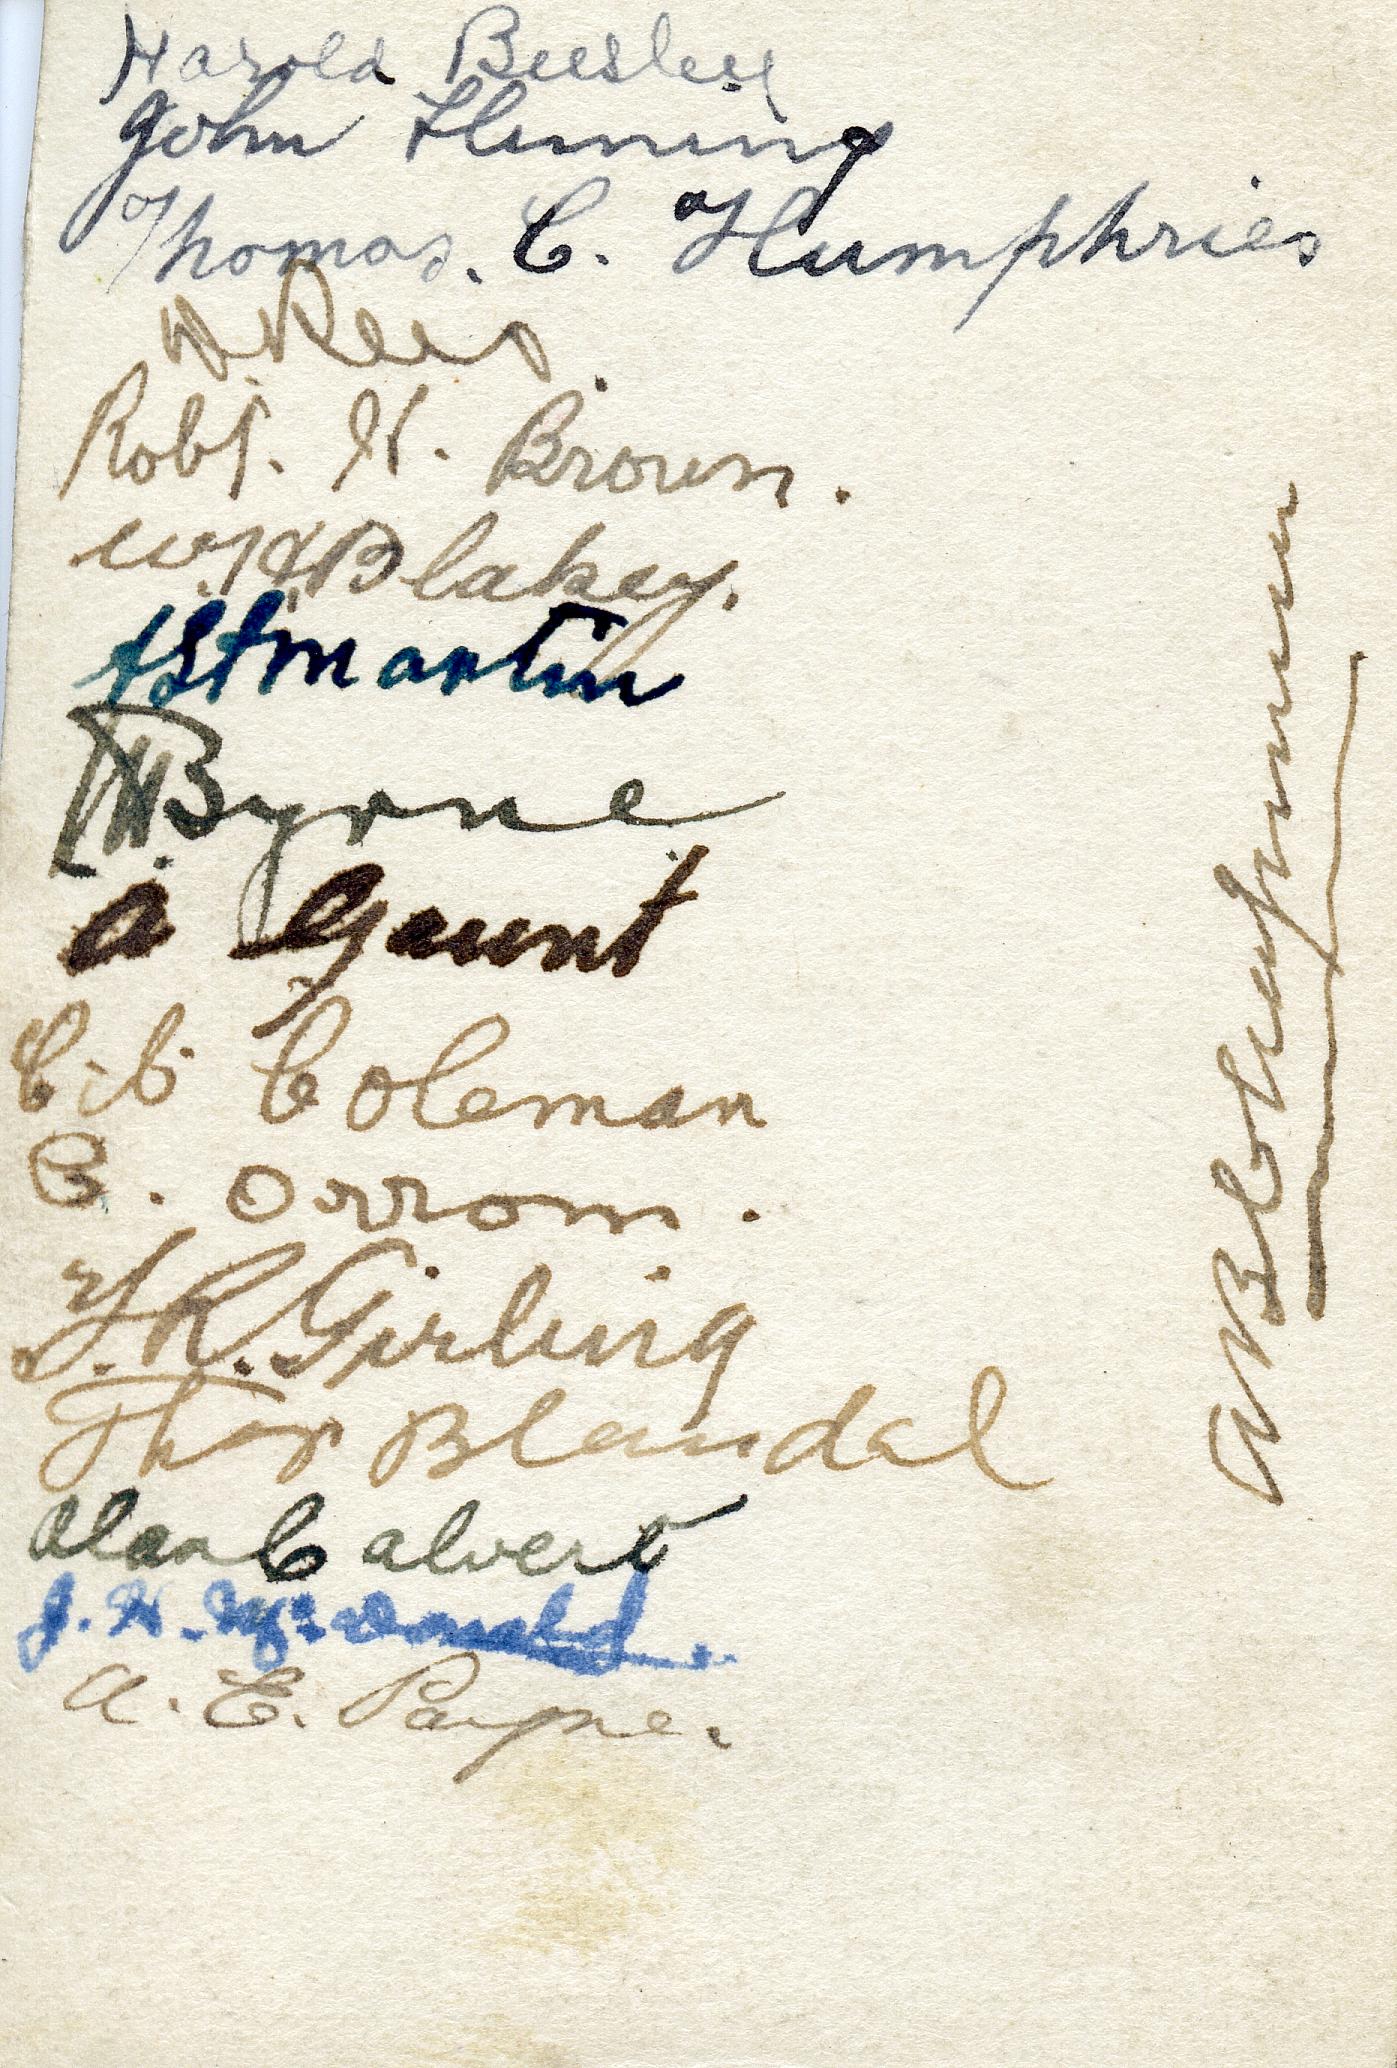 Harold Beesley
John Fleming
Thomas. C. Humphries
Rees.
Robt. H. Brown.
W. H. Blakey.
Martin
Byrne
A Gaunt
C. C. Coleman
B. Orrom.
R. Girling
Thos Blandal
Alan Calvert
J. H. McDonald.
A. E. Payne.